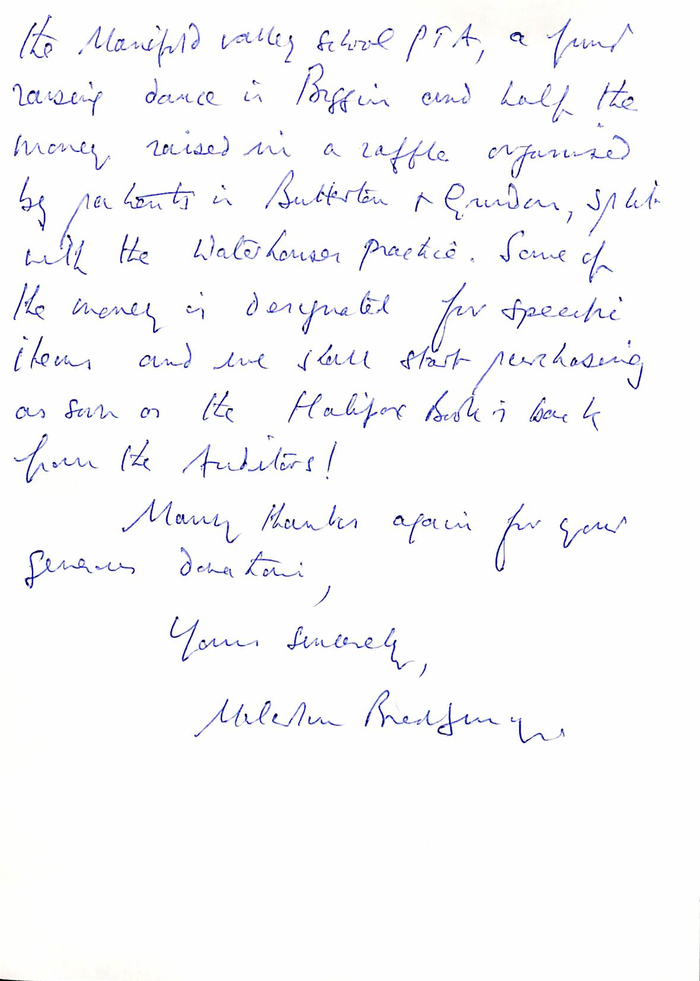 the Manifold valley school PTA, a fund
raising dance in Biggin and half the
money raised in a raffle organised
by patients in Butterton & Grindon, split
with the Waterhouses practice. Some of
the money is designated for specific
items and we shall start purchasing
as soon as the Halifax Book is back
from the Auditors!
Many thanks again for your
generous donation,
Yours sincerely,